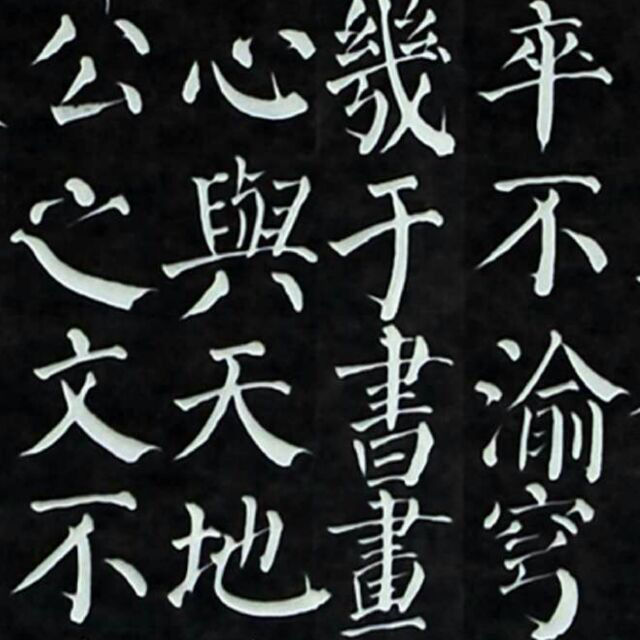 卒不渝穹
幾于書畫
心與天地
公之文不